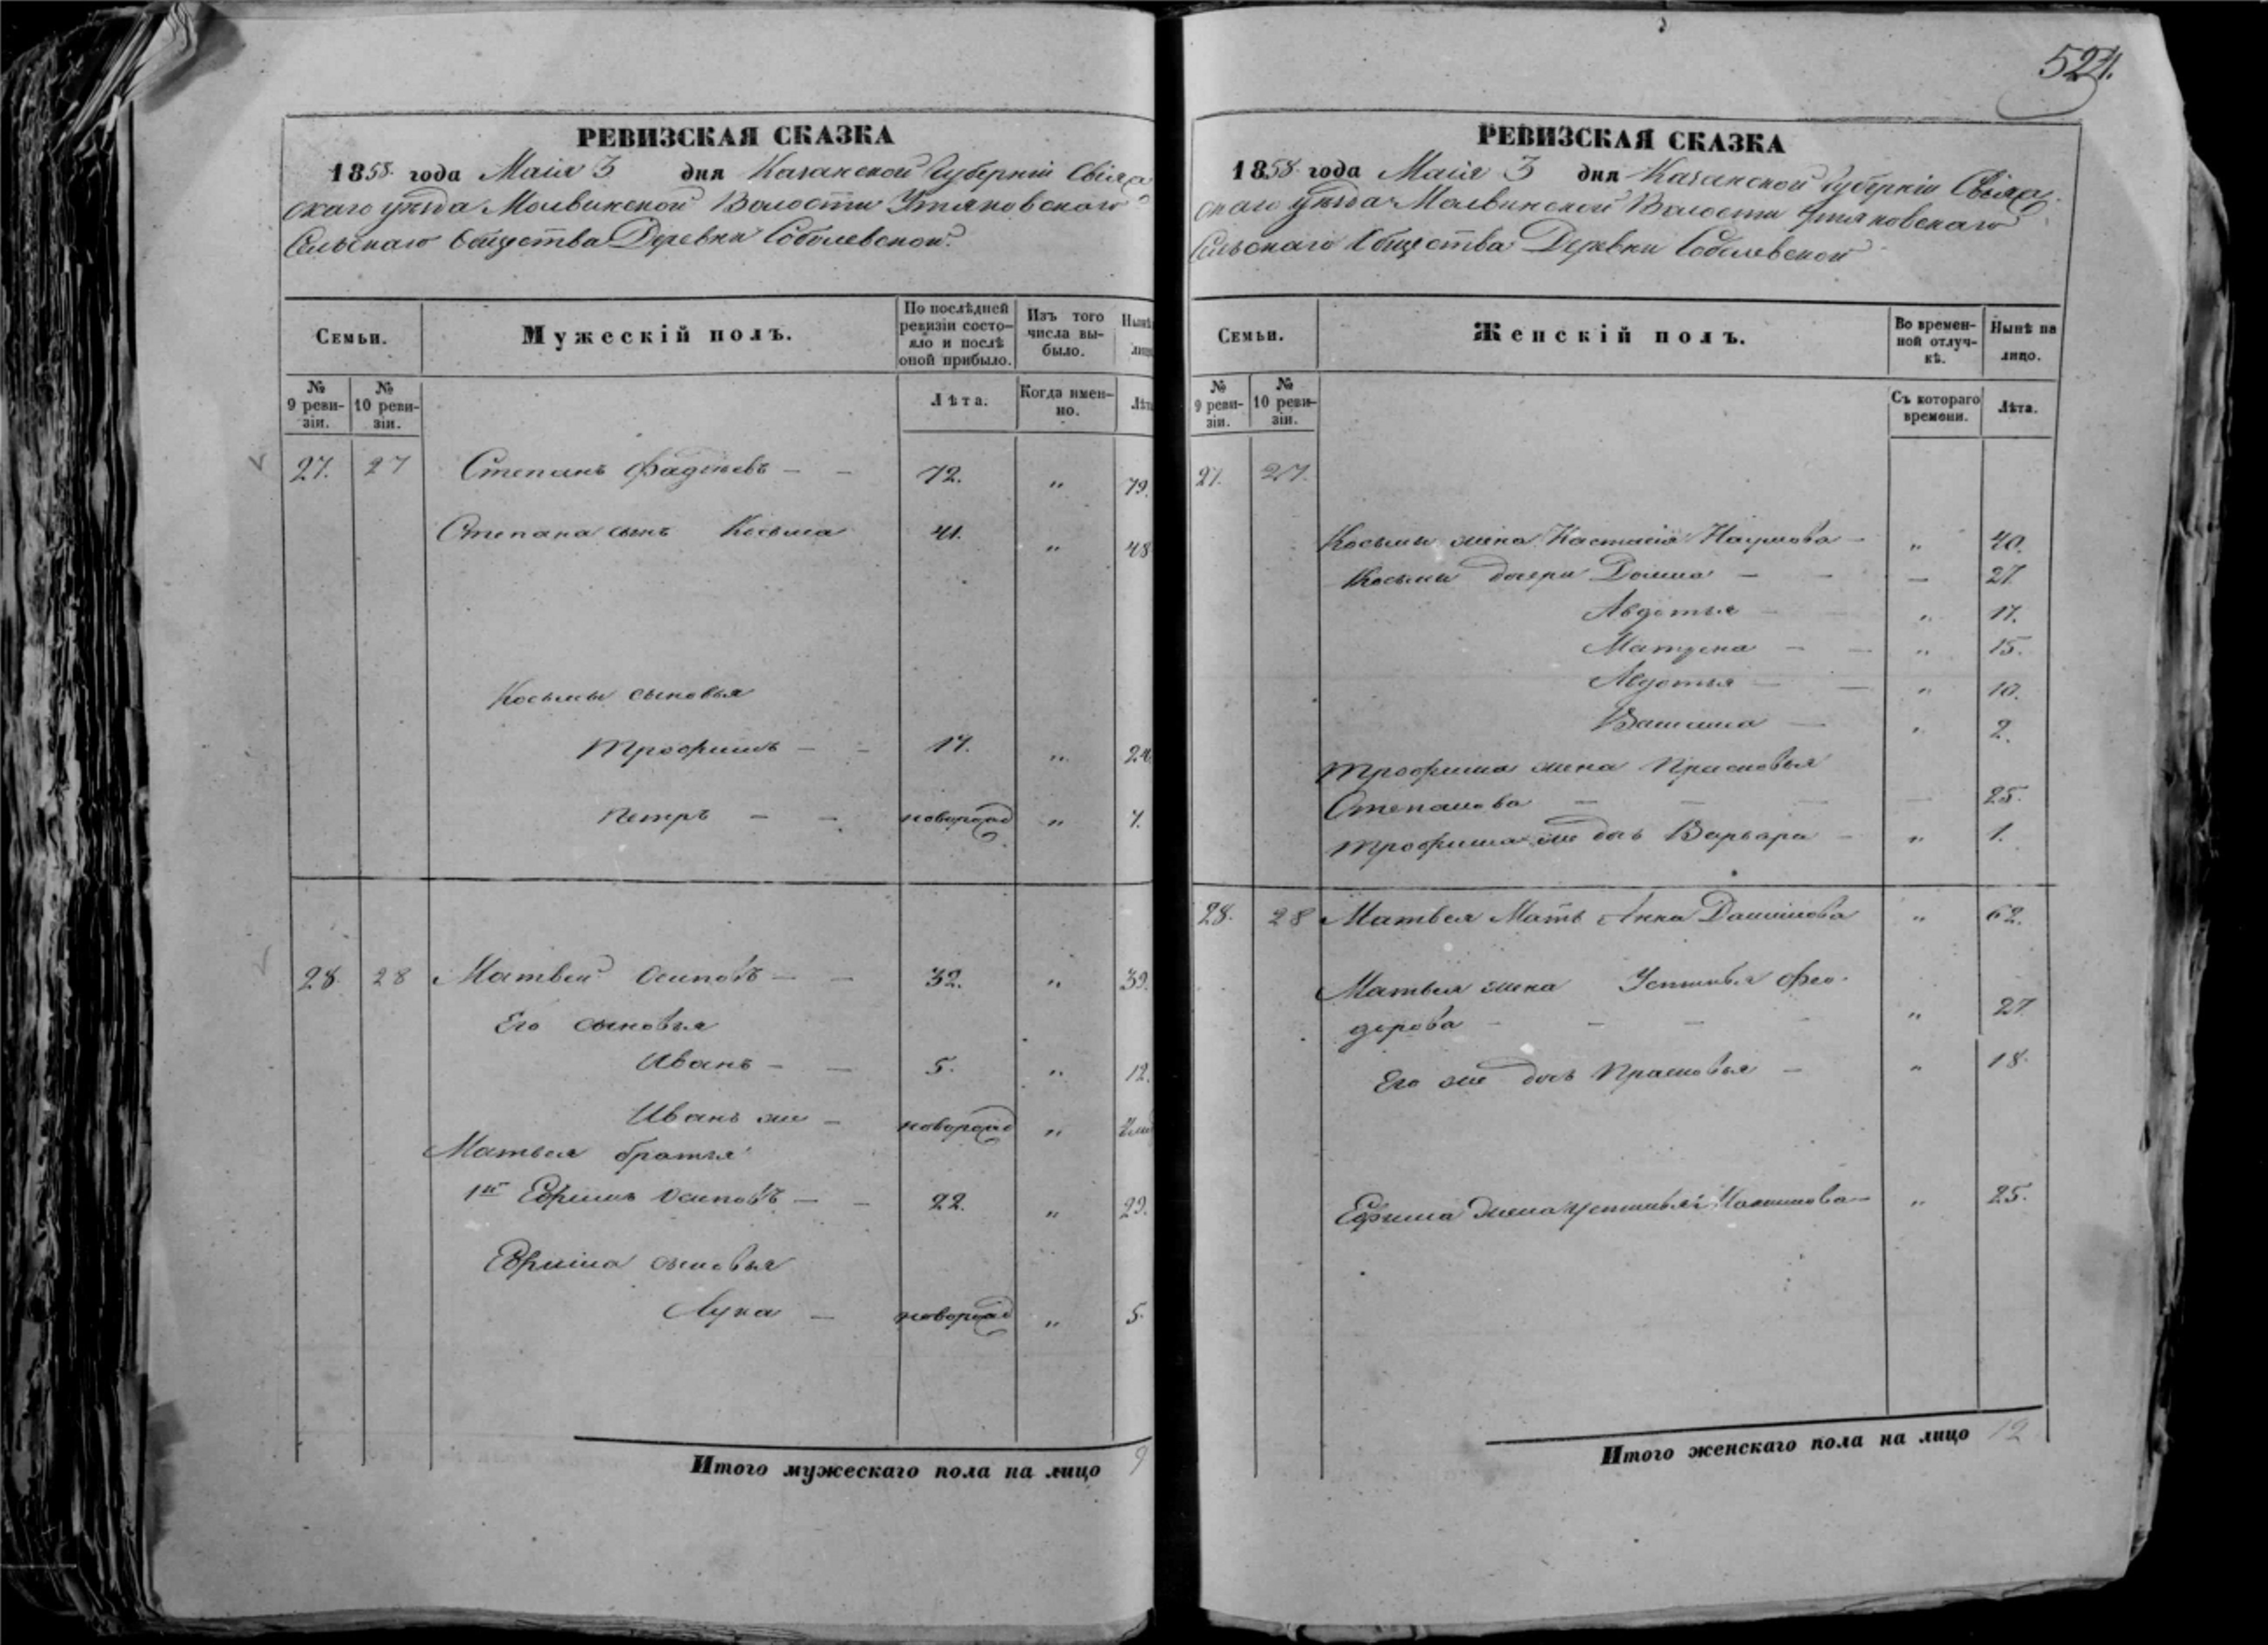 524.
РЕВИЗСКАЯ СКАЗКА
1858 года Маія 3 дня Казанской Губерніи Свіяж
скаго уѣзда Молвинской Волости Утяковскаго
Сельскаго Общества Деревни Соболевской.
Семьи. Мужескій полъ. По послѣдней ревизіи состояло и послѣ оной прибыло. Изъ того числа выбыло. Нынѣ
№ 9 ревизіи. № 10 ревизіи. Лѣта. Когда именно. Лѣта
27. 27 Степанъ Фадѣевъ — — 72. " 79.
Степана сынъ Косьма 41. " 48
Косьмы сыновья
Трофимъ — — 17. " 24.
Петръ — — новорожд " 7.
28. 28 Матвей Осиповъ — — 32. " 39.
Его сыновья
Иванъ — — 5. " 12.
Иванъ же — новорожд "
Матвея братья
1й Ефимъ Осиповъ — — 22. " 29.
Ефима сыновья
Лука — новорожд " 5.
Итого мужескаго пола на лицо 9
РЕВИЗСКАЯ СКАЗКА
1858 года Маія 3 дня Казанской Губерніи Свіяж
скаго уѣзда Молвинской Волости Утяковскаго
Сельскаго Общества Деревни Соболевской
Семьи. Женскій полъ. Во временной отлучкѣ. Нынѣ на лицо.
№ 9 ревизіи. № 10 ревизіи. Съ котораго времени. Лѣта.
27. 27.
Косьмы жена Настасія Наумова — " 40.
Косьмы дочери Домна — — — 27
Авдотья — " 17.
Матрена — — " 15.
Авдотья — — " 10.
— " 2.
Трофима жена Прасковья
Степанова — — — — 25.
Трофима же дочь Варвара — " 1.
28. 28 Матвея Мать Анна Данилова " 62.
Матвея жена Устинья Фео-
дорова — — — " 27
Его же дочь Прасковья — " 18.
Ефима жена Устинья — " 25.
Итого женскаго пола на лицо 12